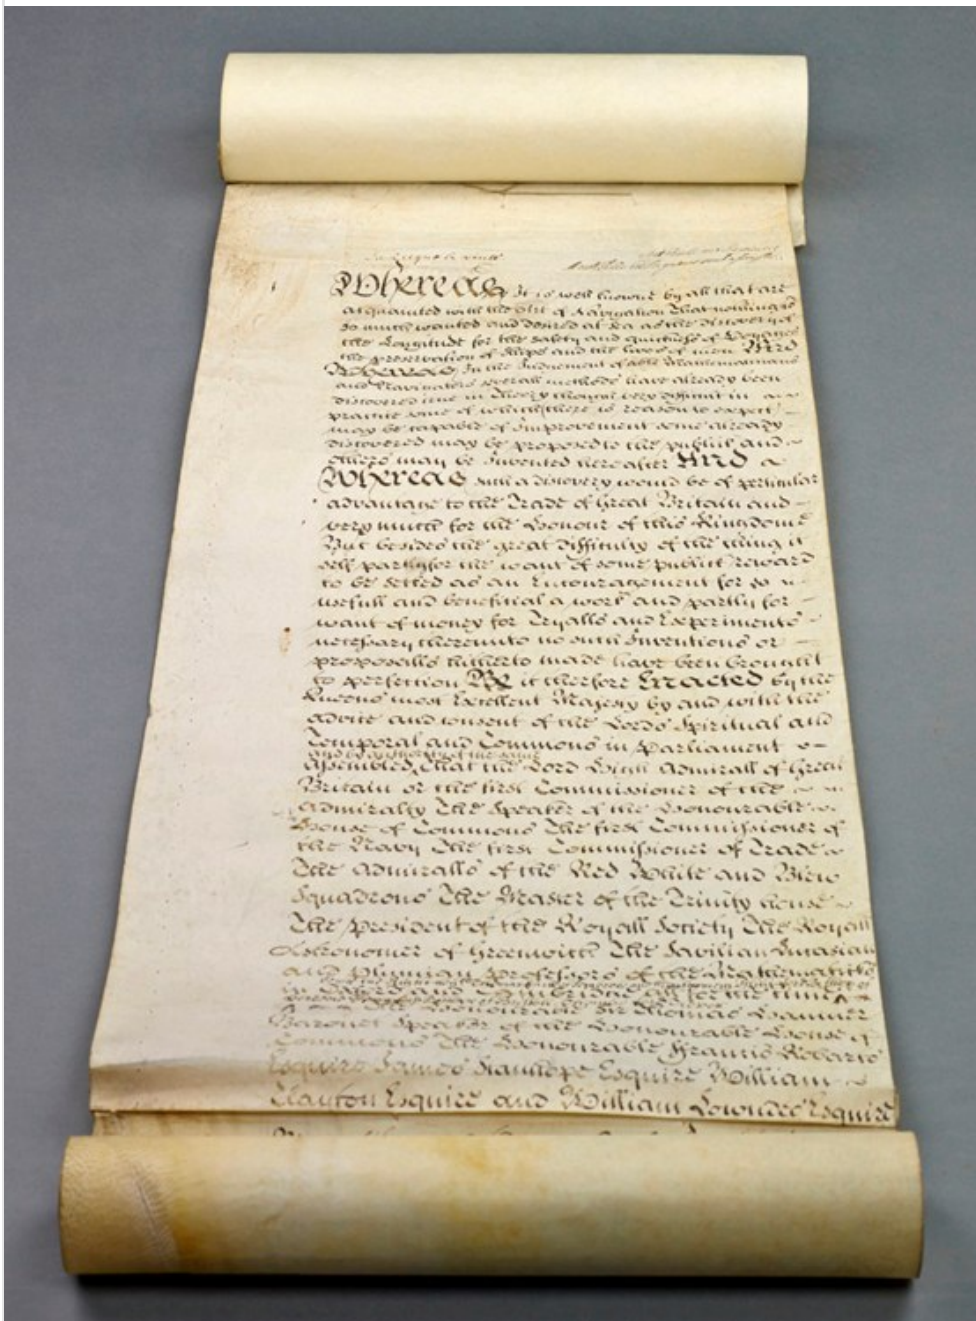 Whereas It is well knowne by all that are
acquainted with the Art of Navigation That nothing is
so much wanted and desired at Sea as the discovery of
the Longitude for the safety and quickness of Voyages
the preservation of Shipps and the lives of men And
Whereas In the Judgement of able Mathematicians
and Navigators severall methods have already been
discovered true in Theory though very difficult in
practice some of which there is reason to expect
may be capable of Improvement some already
discovered may be proposed to the publick and
others may be Invented hereafter And
Whereas such a discovery would be of perticular
advantage to the Trade of Great Britain and
very much for the Honour of this Kingdome
But besides the great difficulty of the thing it
self partly for the want of some publick reward
to be setled as an Encouragement for so
usefull and beneficial a work and partly for
want of money for Tryalls and Experiments
necessary thereunto no such Inventions or
proposalls hitherto made have been brought
to perfection Be it therefore Enacted by the
Queens most Excellent Majesty by and with the
advice and consent of the Lords Spiritual and
Temporal and Commons in Parliament
and by authority of the same
Assembled That the Lord High Admirall of Great
Britain or the first Commissioner of the
Admiralty The Speaker of the Honourable
House of Commons The first Commissioner of
the Navy The first Commissioner of Trade
The Admiralls of the Red White and Blew
Squadrons The Master of the Trinity house
The President of the Royall Society The Royall
Astronomer of Greenwich The Savilian Lucasian
and Plumian Professors of the Mathematicks
in Oxford and Cambridge all for the time
The Honourable Sir Thomas Hanmer
Baronet Speaker of the Honourable House of
Commons The Honourable Francis Robarts
Esquire James Stanhope Esquire William
Clayton Esquire and William Lowndes Esquire